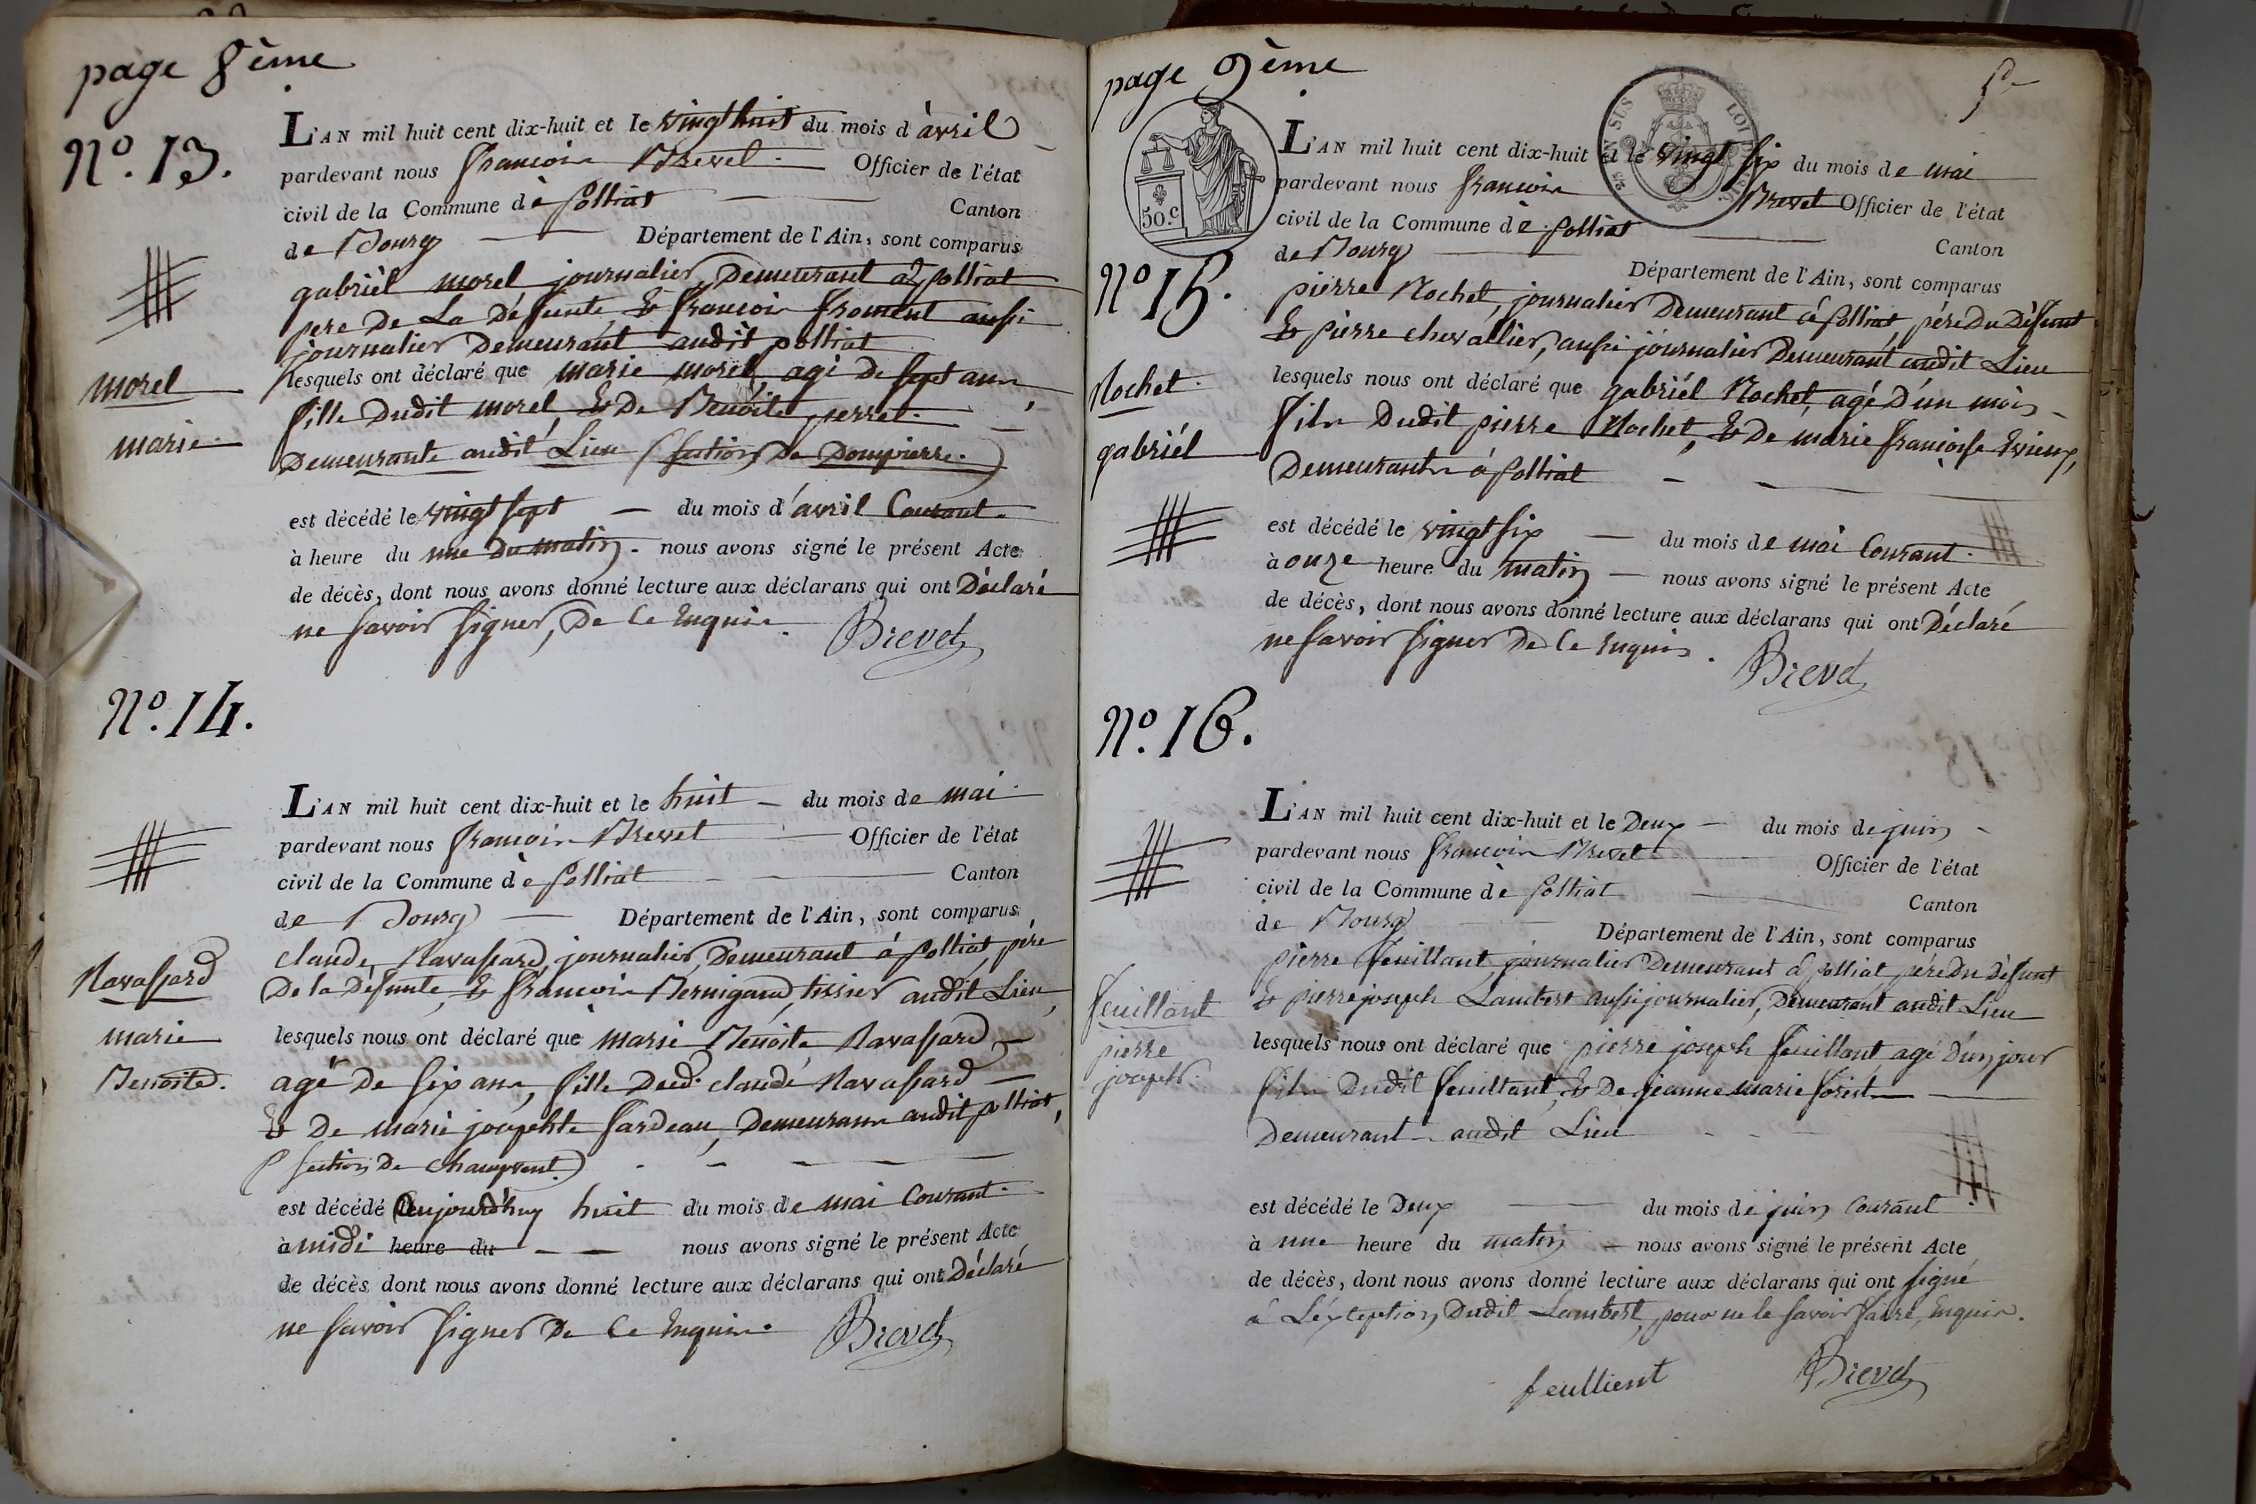 page 8ème
N.º 13.
L'AN mil huit cent dix-huit et le vingt huit du mois d'avril
pardevant nous françois Brevet. Officier de l'état
civil de la Commune de polliat Canton
de Bourg Département de l'Ain, sont comparus
gabriël morel journalier, Demeurant à polliat
pere De La Défunte & françois froment aussi
journalier Demeurant audit polliat
lesquels ont déclaré que marie morel agé De sept ans
morel
marie
fille Dudit morel, & De Benoite perret.
Demeurante audit Lieu (section De Dompierre.)
est décédé le vingt sept du mois d'avril Courant.
à heure du une Du matin. nous avons signé le présent Acte
de décès, dont nous avons donné lecture aux déclarans qui ont Déclaré
ne savoir signer, De Ce Enquis.
Brevet
N.º 14.
L'AN mil huit cent dix-huit et le huit du mois de mai
pardevant nous françois Brevet Officier de l'état
civil de la Commune de polliat Canton
de Bourg Département de l'Ain, sont comparus
Ravassard
marie
Benoite.
claude Ravassard, journalier, Demeurant à polliat, père
De la Défunte, & françois Bernigaud, tissier audit Lieu,
lesquels nous ont déclaré que marie Benoite Ravassard,
agé De six ans, fille Dud. claude Ravassard
& De marie josephte fardeau, Demeurans audit polliat,
(section De champvent.)
est décédé aujourd'huy huit du mois de mai Courant.
à midi heure du nous avons signé le présent Acte
de décès dont nous avons donné lecture aux déclarans qui ont Déclaré
ne savoir signer De Ce Enquis.
Brevet
page 9ème
50.C
N.º 15.
L'AN mil huit cent dix-huit et le vingt six du mois de mai
pardevant nous françois Brevet Officier de l'état
civil de la Commune de polliat Canton
de Bourg Département de l'Ain, sont comparus
pierre Rochet, journalier Demeurant à polliat, père Du Défunt
& pierre chevallier, aussi journalier Demeurant audit Lieu
Rochet
gabriël
lesquels nous ont déclaré que gabriël Rochet, agé D'un mois
fils Dudit pierre Rochet, & De marie françoise Evieux,
Demeurants à polliat
est décédé le vingt six du mois de mai Courant.
à onze heure du matin nous avons signé le présent Acte
de décès, dont nous avons donné lecture aux déclarans qui ont Déclaré
ne savoir signer De Ce Enquis.
Brevet
N.º 16.
L'AN mil huit cent dix-huit et le Deux du mois de juin
pardevant nous françois Brevet Officier de l'état
civil de la Commune de polliat Canton
de Bourg Département de l'Ain, sont comparus
feuillant
pierre
joseph.
pierre feuillant, journalier Demeurant à polliat, père Du Défunt
& pierre joseph Lambert aussi journalier, Demeurant audit Lieu
lesquels nous ont déclaré que pierre joseph feuillant, agé D'un jour
fils Dudit feuillant, & De jeanne marie forest
Demeurant audit Lieu
est décédé le Deux du mois de juin Courant.
à une heure du matin nous avons signé le présent Acte
de décès, dont nous avons donné lecture aux déclarans qui ont signé
à L'éxception Dudit Lambert, pour ne le savoir faire, Enquis.
feullient
Brevet